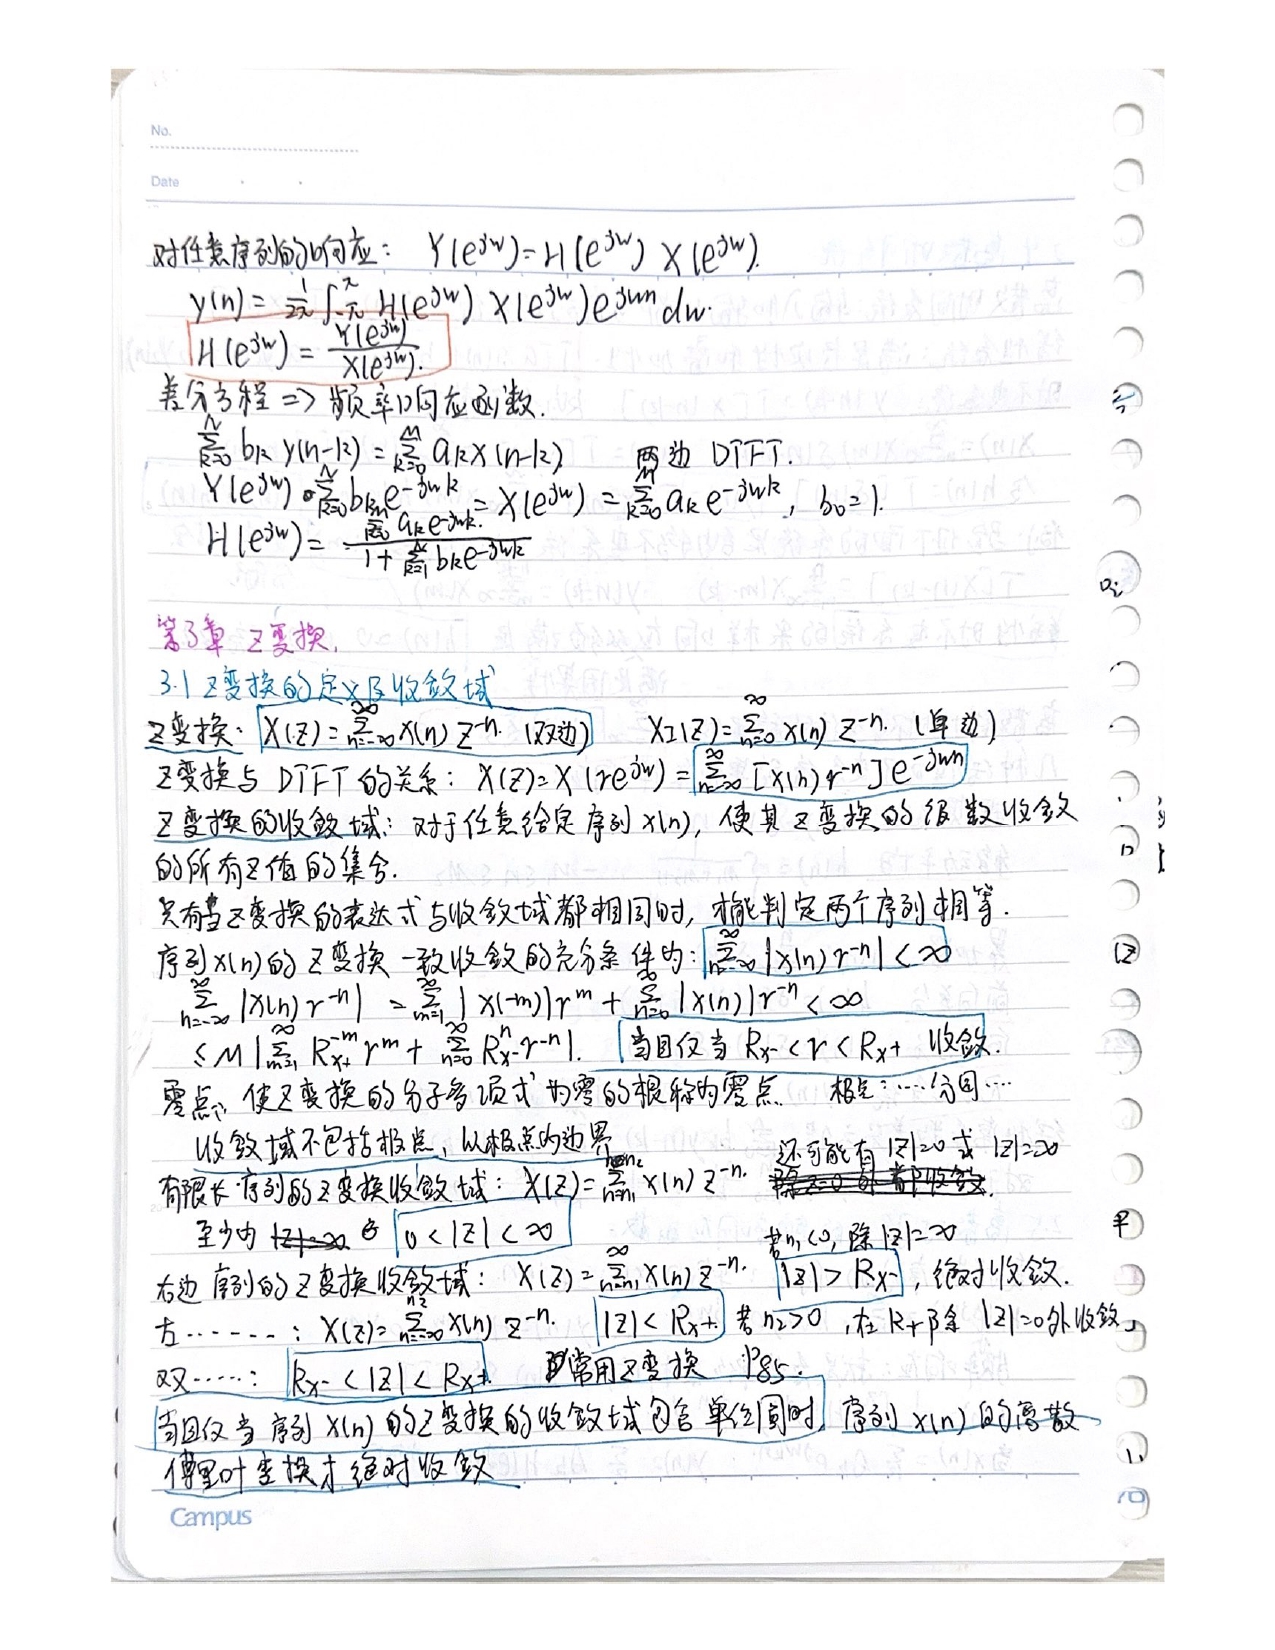 No.
Date
对任意序列的响应: Y(e^{jw}) = H(e^{jw}) X(e^{jw}).
y(n) = \frac{1}{2π} ∫_{-π}^{π} H(e^{jw}) X(e^{jw}) e^{jwn} dw.
H(e^{jw}) = \frac{Y(e^{jw})}{X(e^{jw})}.
差分方程 => 频率响应函数.
\sum_{k=0}^{N} b_k y(n-k) = \sum_{k=0}^{M} a_k x(n-k) 两边 DTFT.
Y(e^{jw}) · \sum_{k=0}^{N} b_k e^{-jwk} = X(e^{jw}) = \sum_{k=0}^{M} a_k e^{-jwk}, b_0 = 1.
H(e^{jw}) = \frac{\sum_{k=0}^{M} a_k e^{-jwk}.}{1 + \sum_{k=1}^{N} b_k e^{-jwk}}
第3章 Z变换.
3.1 Z变换的定义及收敛域
Z变换: X(Z) = \sum_{n=-∞}^{∞} x(n) Z^{-n}. (双边) X_I(Z) = \sum_{n=0}^{∞} x(n) Z^{-n}. (单边)
Z变换与 DTFT 的关系: X(Z) = X(re^{jw}) = \sum_{n=-∞}^{∞} [x(n) r^{-n}] e^{-jwn}
Z变换的收敛域: 对于任意给定序列 x(n), 使其Z变换的级数收敛
的所有Z值的集合.
只有当Z变换的表达式与收敛域都相同时, 才能判定两个序列相等.
序列x(n)的Z变换一致收敛的充分条件为: \sum_{n=-∞}^{∞} |x(n) r^{-n}| < ∞
\sum_{n=-∞}^{∞} |x(n) r^{-n}| = \sum_{m=1}^{∞} |x(-m)| r^m + \sum_{n=0}^{∞} |x(n)| r^{-n} < ∞
≤ M |\sum_{m=1}^{∞} R_{x+}^{-m} r^m + \sum_{n=0}^{∞} R_{x-}^{n} r^{-n}|. 当且仅当 R_{x-} < r < R_{x+} 收敛.
零点: 使Z变换的分子多项式为零的根称为零点. 极点: ····分母····
收敛域不包括极点, 以极点为边界
有限长序列的Z变换收敛域: X(Z) = \sum_{n=n_1}^{n_2} x(n) Z^{-n}. 还可能有 |Z|=0 或 |Z|=∞
至少为 0 < |Z| < ∞ 若n_1<0, 除|Z|=∞
右边序列的Z变换收敛域: X(Z) = \sum_{n=n_1}^{∞} x(n) Z^{-n}. |Z| > R_{x-}, 绝对收敛.
左······: X(Z) = \sum_{n=-∞}^{n_2} x(n) Z^{-n}. |Z| < R_{x+} 若n_2>0, 在R+内除 |Z|=0外收敛
双·····: R_{x-} < |Z| < R_{x+} 常用Z变换 P85.
当且仅当序列 x(n) 的Z变换的收敛域包含单位圆时, 序列 x(n) 的离散
傅里叶变换才绝对收敛
Campus